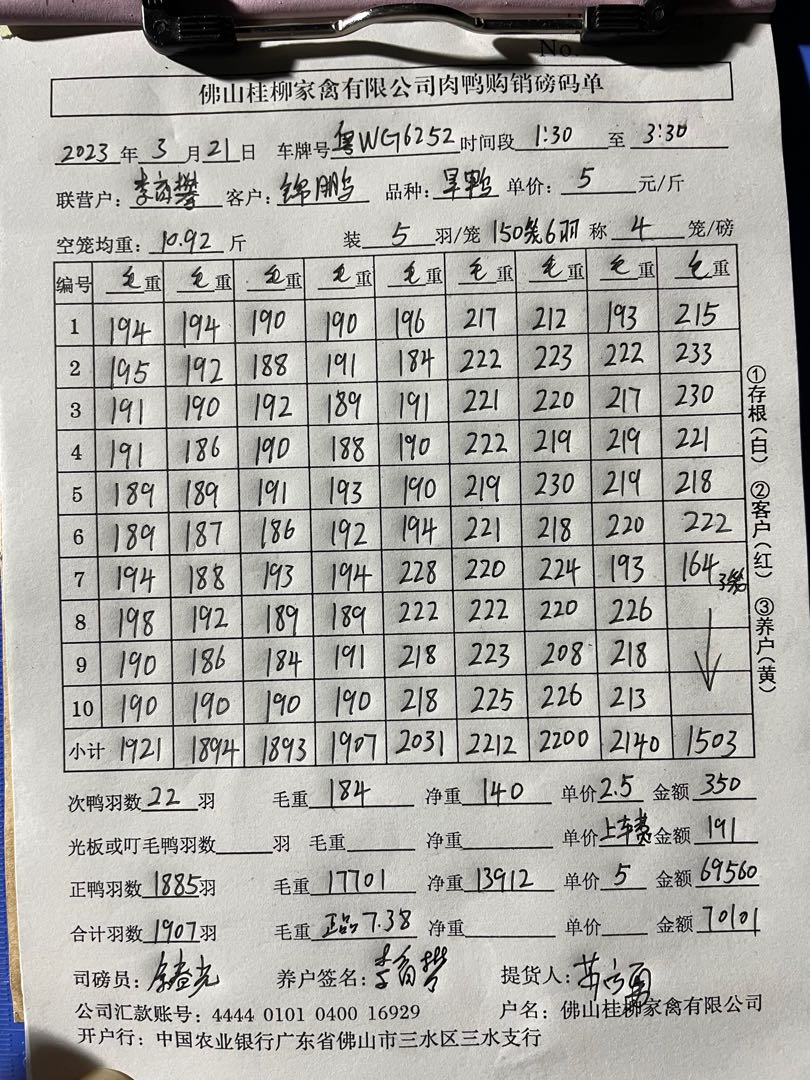 No.
佛山桂柳家禽有限公司肉鸭购销磅码单
2023年3月21日 车牌号粤WG6252时间段1:30至3:30
联营户:李育攀 客户:锦鹏 品种:旱鸭 单价:5元/斤
空笼均重:10.92斤 装5羽/笼 150笼6羽 称4笼/磅
编号 毛重 毛重 毛重 毛重 毛重 毛重 毛重 毛重 毛重
1 194 194 190 190 196 217 212 193 215
2 195 192 188 191 184 222 223 222 233
3 191 190 192 189 191 221 220 217 230
4 191 186 190 188 190 222 219 219 221
5 189 189 191 193 190 219 230 219 218
6 189 187 186 192 194 221 218 220 222
7 194 188 193 194 228 220 224 193 164 3笼
8 198 192 189 189 222 222 220 226
9 190 186 184 191 218 223 208 218
10 190 190 190 190 218 225 226 213
小计 1921 1894 1893 1907 2031 2212 2200 2140 1503
①存根(白) ②客户(红) ③养户(黄)
次鸭羽数22羽 毛重184 净重140 单价2.5 金额350
光板或叮毛鸭羽数 羽 毛重 净重 单价上车费金额191
正鸭羽数1885羽 毛重17701 净重13912 单价5 金额69560
合计羽数1907羽 毛重正品7.38 净重 单价 金额70101
司磅员: 养户签名:李育攀 提货人:
公司汇款账号:4444 0101 0400 16929 户名:佛山桂柳家禽有限公司
开户行:中国农业银行广东省佛山市三水区三水支行